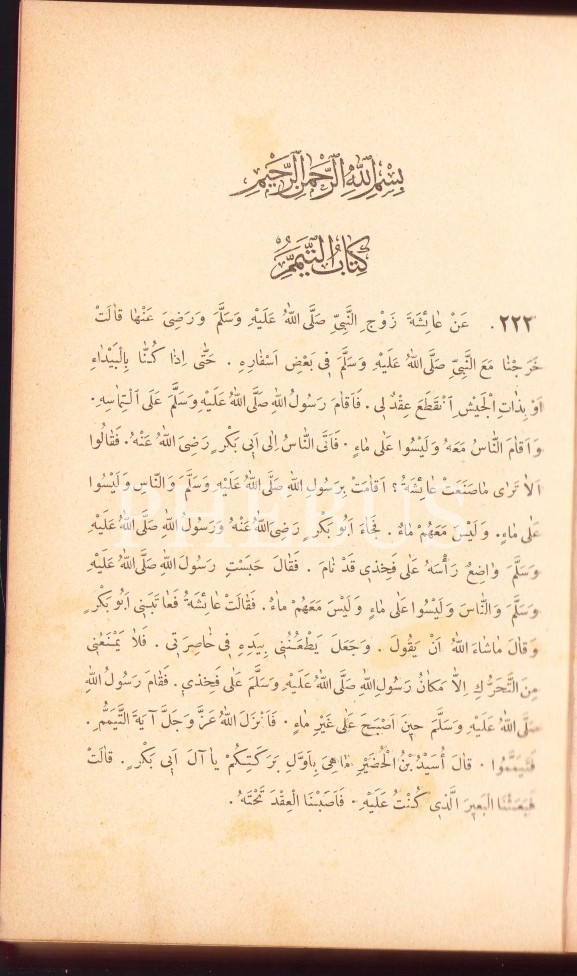 بِسْمِ اللّٰهِ الرَّحْمٰنِ الرَّحٖيمِ
كِتَابُ التَّيَمُّمِ
٢٢٢ . عَنْ عَائِشَةَ زَوْجِ النَّبِيِّ صَلَّى اللّٰهُ عَلَيْهِ وَسَلَّمَ وَرَضِىَ عَنْهَا قَالَتْ
خَرَجْنَا مَعَ النَّبِيِّ صَلَّى اللّٰهُ عَلَيْهِ وَسَلَّمَ فِى بَعْضِ اَسْفَارِهِ . حَتَّى اِذَا كُنَّا بِالْبَيْدَاءِ
اَوْ بِذَاتِ الْجَيْشِ اِنْقَطَعَ عِقْدٌ لِى . فَاَقَامَ رَسُولُ اللّٰهِ صَلَّى اللّٰهُ عَلَيْهِ وَسَلَّمَ عَلَى الْتِمَاسِهِ .
وَاَقَامَ النَّاسُ مَعَهُ وَلَيْسُوا عَلَى مَاءٍ . فَاَتَى النَّاسُ اِلَى اَبِى بَكْرٍ رَضِىَ اللّٰهُ عَنْهُ . فَقَالُوا
اَلَا تَرَى مَاصَنَعَتْ عَائِشَةُ ؟ اَقَامَتْ بِرَسُولِ اللّٰهِ صَلَّى اللّٰهُ عَلَيْهِ وَسَلَّمَ وَالنَّاسِ وَلَيْسُوا
عَلَى مَاءٍ . وَلَيْسَ مَعَهُمْ مَاءٌ . فَجَاءَ اَبُو بَكْرٍ رَضِىَ اللّٰهُ عَنْهُ وَرَسُولُ اللّٰهِ صَلَّى اللّٰهُ عَلَيْهِ
وَسَلَّمَ وَاضِعٌ رَأْسَهُ عَلَى فَخِذِى قَدْ نَامَ . فَقَالَ حَبَسْتِ رَسُولَ اللّٰهِ صَلَّى اللّٰهُ عَلَيْهِ
وَسَلَّمَ وَالنَّاسَ وَلَيْسُوا عَلَى مَاءٍ وَلَيْسَ مَعَهُمْ مَاءٌ . فَقَالَتْ عَائِشَةُ فَعَاتَبَنِى اَبُو بَكْرٍ
وَقَالَ مَاشَاءَ اللّٰهُ اَنْ يَقُولَ . وَجَعَلَ يَطْعُنُنِى بِيَدِهِ فِى خَاصِرَتِى . فَلَا يَمْنَعُنِى
مِنَ التَّحَرُّكِ اِلَّا مَكَانُ رَسُولِ اللّٰهِ صَلَّى اللّٰهُ عَلَيْهِ وَسَلَّمَ عَلَى فَخِذِى . فَقَامَ رَسُولُ اللّٰهِ
صَلَّى اللّٰهُ عَلَيْهِ وَسَلَّمَ حِينَ اَصْبَحَ عَلَى غَيْرِ مَاءٍ . فَاَنْزَلَ اللّٰهُ عَزَّ وَجَلَّ آيَةَ التَّيَمُّمِ .
فَتَيَمَّمُوا . قَالَ اُسَيْدُ بْنُ الْحُضَيْرِ مَا هِىَ بِاَوَّلِ بَرَكَتِكُمْ يَا آلَ اَبِى بَكْرٍ . قَالَتْ
فَبَعَثْنَا الْبَعِيرَ الَّذِى كُنْتُ عَلَيْهِ . فَاَصَبْنَا الْعِقْدَ تَحْتَهُ .
PHEBUS